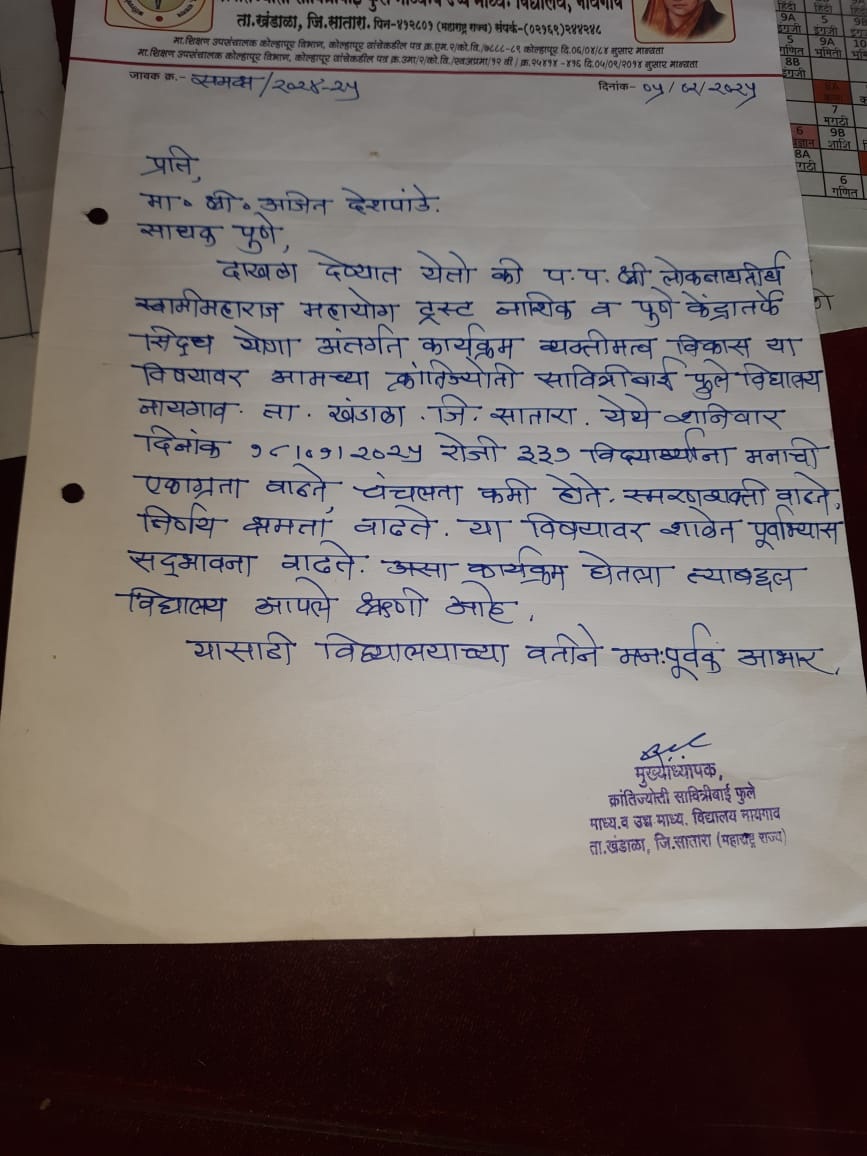 माध्य. विद्यालय, नायगाव
ता.खंडाळा, जि.सातारा. पिन-४१२८०१ (महाराष्ट्र राज्य) संपर्क-(०२१६९)२४४२४८
मा.शिक्षण उपसंचालक कोल्हापूर विभाग, कोल्हापूर यांचेकडील पत्र क्र.एम.१/को.वि./७८८८-८९ कोल्हापूर दि.०६/०४/८४ नुसार मान्यता
मा.शिक्षण उपसंचालक कोल्हापूर विभाग, कोल्हापूर यांचेकडील पत्र क्र.उमा/२/को.वि./स्वअप्रमा/१२ वी / क्र.२५४१४ -४१६ दि.०५/०९/२०१४ नुसार मान्यता
जावक क्र.- समक्ष/२०२४-२५ दिनांक- ०५/०२/२०२५
प्रति,
मा॰ श्री॰ अजित देशपांडे.
साधक पुणे,
दाखला देण्यात येतो की प.प. श्री लोकनाथतीर्थ
स्वामीमहाराज महायोग ट्रस्ट नाशिक व पुणे केंद्रातर्फे
सिद्ध योगा अंतर्गत कार्यक्रम व्यक्तीमत्व विकास या
विषयावर आमच्या क्रांतिज्योती सावित्रीबाई फुले विद्यालय
नायगाव. ता. खंडाळा .जि. सातारा. येथे शनिवार
दिनांक १८।०१।२०२५ रोजी ३३१ विद्यार्थ्यांना मनाची
एकाग्रता वाढते, चंचलता कमी होते. स्मरणशक्ती वाढते,
निर्णय क्षमता वाढते. या विषयावर शाळेत पूर्वाभ्यास
सद्भावना वाढते. असा कार्यक्रम घेतला त्याबद्दल
विद्यालय आपले ऋणी आहे.
यासाठी विद्यालयाच्या वतीने मनःपूर्वक आभार.
मुख्याध्यापक,
क्रांतिज्योती सावित्रीबाई फुले
माध्य.व उच्च माध्य. विद्यालय नायगाव
ता.खंडाळा, जि.सातारा (महाराष्ट्र राज्य)